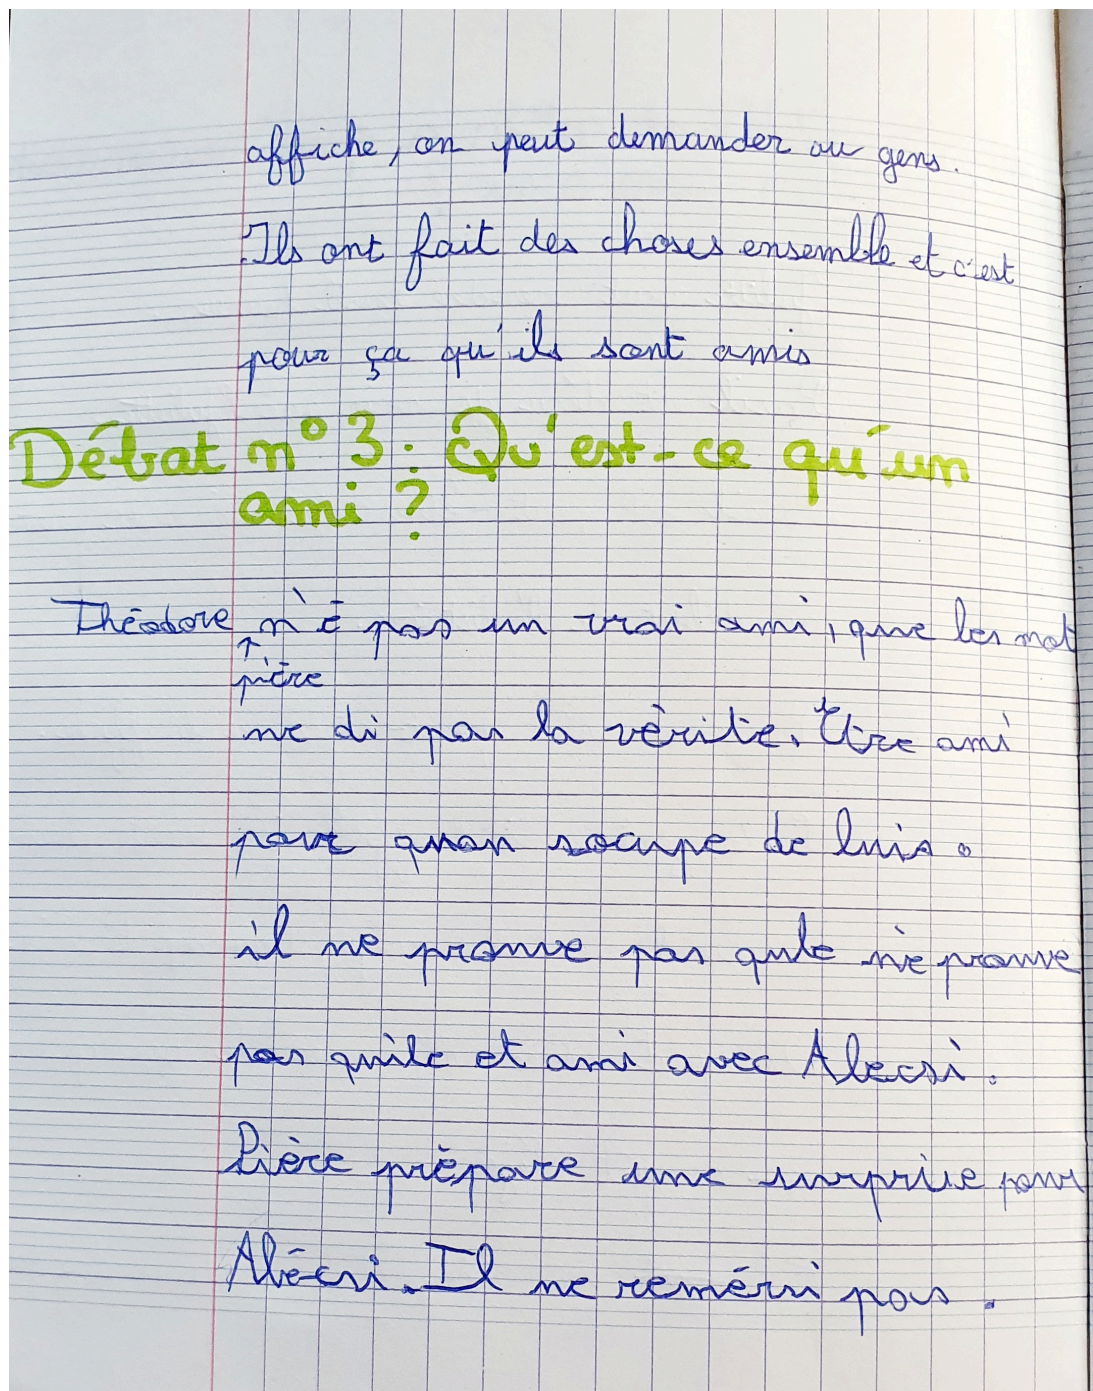 affiche, on peut demander au gens.
Ils ont fait des choses ensemble et c'est
pour ça qu'ils sont amis
Débat n° 3 : Qu'est-ce qu'un
ami ?
Théodore n'é pas un vrai ami, que les mot
↑
pière
ne di pas la vérité. Être ami
pour quon socupe de luis.
il ne prouve pas qule n'e prouve
pas quile et ami avec Alecsi.
Pière prépare une surprise pour
Alécsi. Il ne remérsi pas.